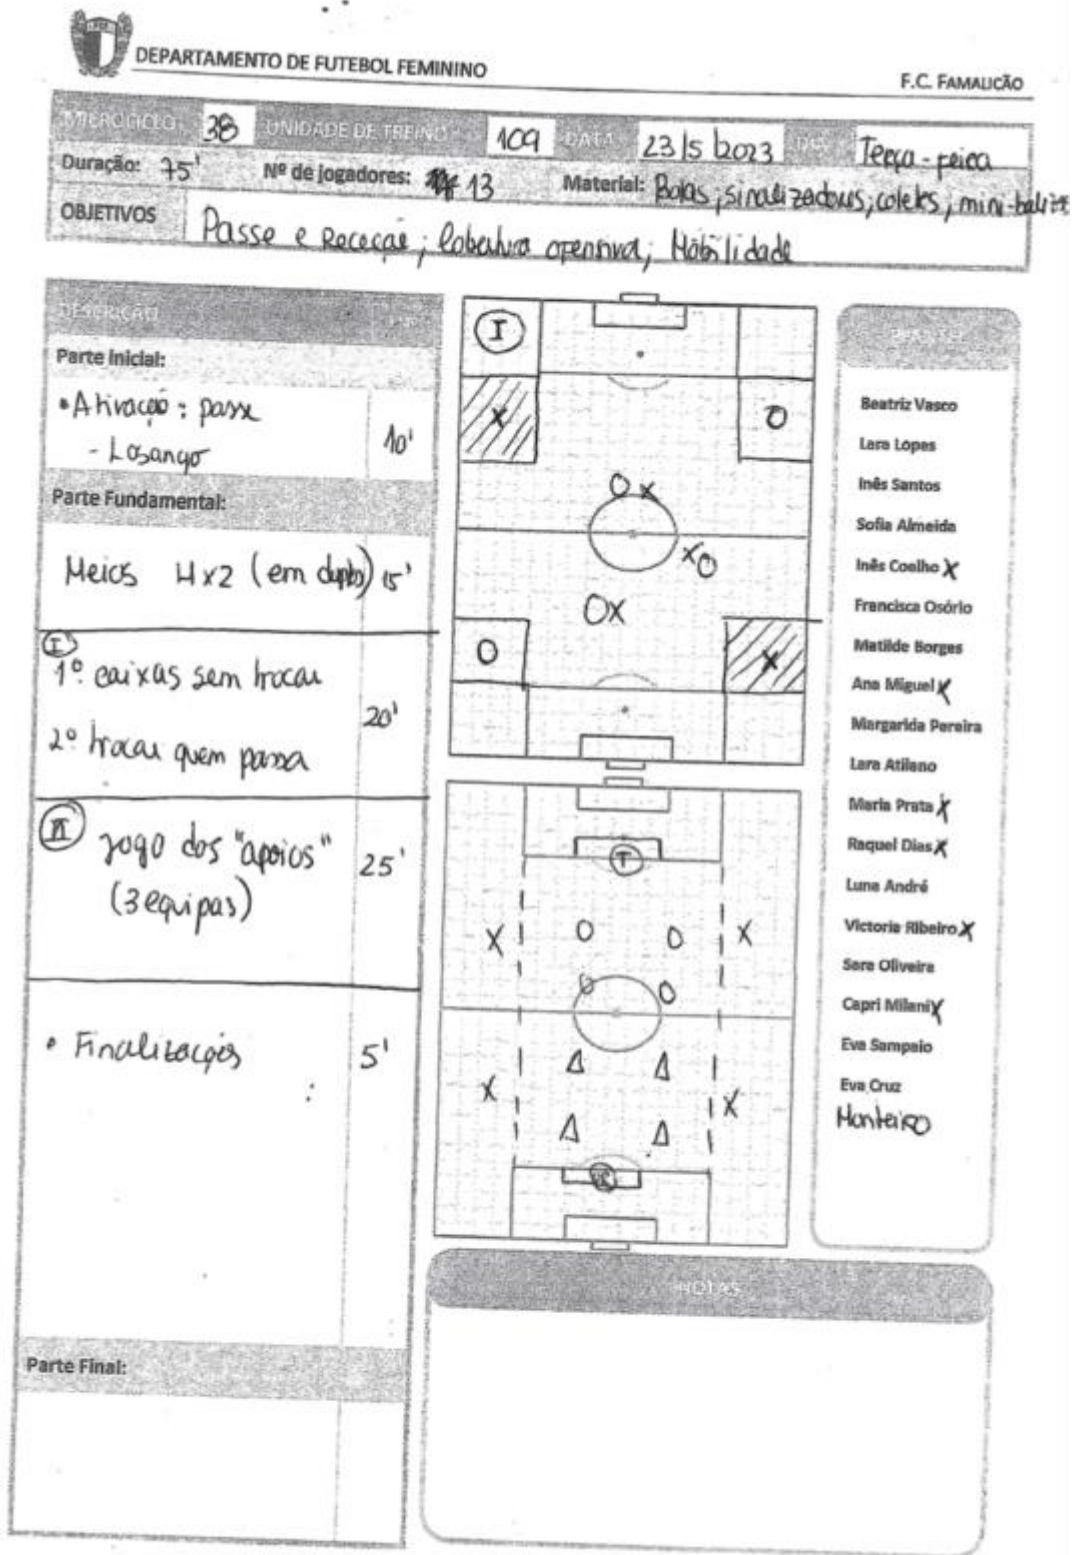 DEPARTAMENTO DE FUTEBOL FEMININO
F.C. FAMALICÃO
MICROCICLO: 38 UNIDADE DE TREINO 109 DATA 23/5/2023 Terça-feira
Duração: 75' Nº de jogadores: 13 Material: Bolas; sinalizadores; coletes; mini-baliza
OBJETIVOS Passe e Receção; Cobertura ofensiva; Mobilidade
DESCRIÇÃO
Parte Inicial:
• Ativação: passe
- Losango 10'
Parte Fundamental:
Meios 4x2 (em duplas) 15'
I
1º caixas sem trocar
20'
2º trocar quem passa
II Jogo dos "apoios" 25'
(3 equipas)
• Finalizações 5'
Parte Final:
I
X O
O X
X O
O X
O X
T
X O O X
O O
Δ Δ
X X
Δ Δ
Beatriz Vasco
Lara Lopes
Inês Santos
Sofia Almeida
Inês Coelho X
Francisca Osório
Matilde Borges
Ana Miguel X
Margarida Pereira
Lara Atilano
Maria Prata X
Raquel Dias X
Luna André
Victoria Ribeiro X
Sara Oliveira
Capri Milani X
Eva Sampaio
Eva Cruz
Monteiro
NOTAS